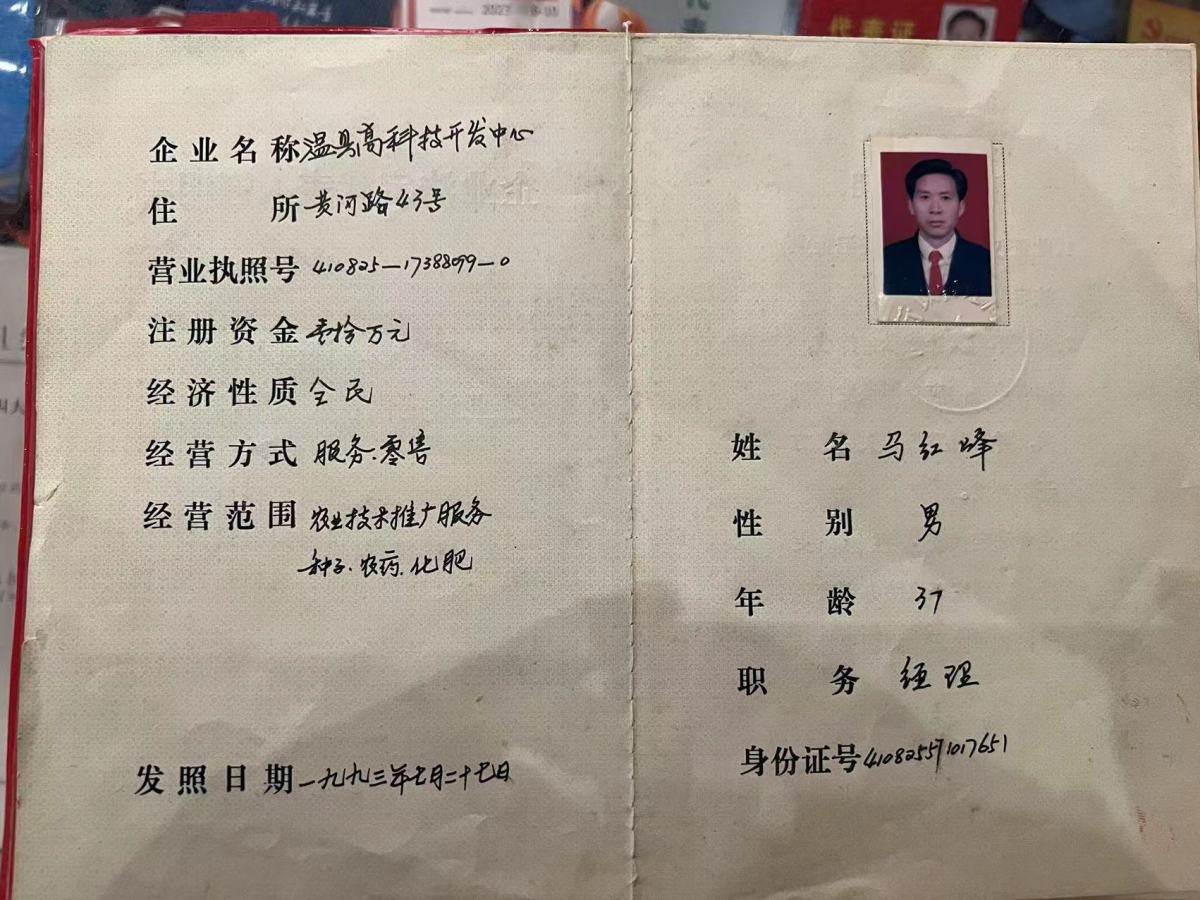 代表证
企业名称 温县高科技开发中心
住所 黄河路43号
营业执照号 410825-1738899-0
注册资金 壹拾万元
经济性质 全民
经营方式 服务.零售
经营范围 农业技术推广服务
种子.农药.化肥
发照日期 一九九三年七月二十七日
姓名 马红峰
性别 男
年龄 37
职务 经理
身份证号 410825571017651